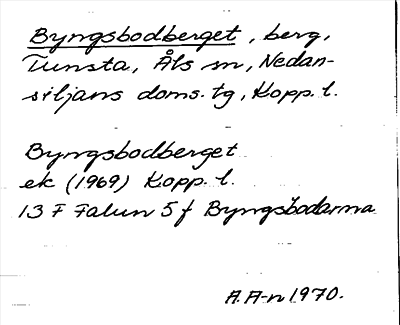 Byngsbodberget, berg,
Tunsta, Åls sn, Nedan-
siljans doms. tg, Kopp. l.
Byngsbodberget
ek (1969) Kopp. l.
13 F Falun 5 f Byngsbodarna
A. A-n 1970.